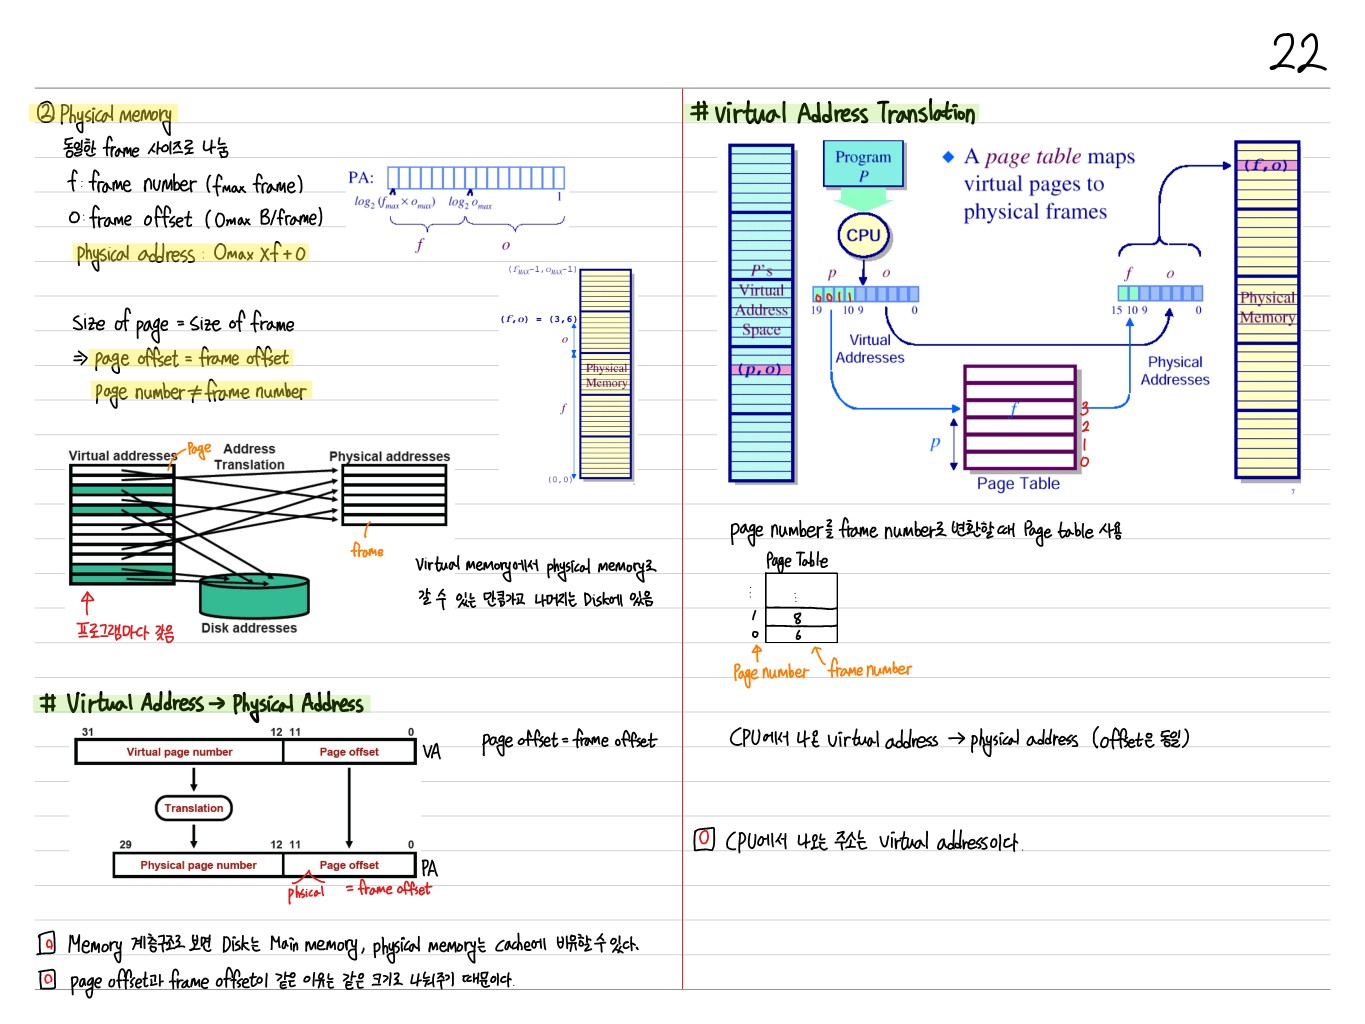 22
② Physical memory
동일한 frame 사이즈로 나눔
f : frame number (fmax frame)
o : frame offset (Omax B/frame)
Physical address : Omax X f + O
PA:
log₂(fmax×omax) log₂omax 1
f o
(fMAX-1,oMAX-1)
(f,o) = (3,6)
o
Physical
Memory
f
(0,0)
Size of page = Size of frame
⇒ page offset = frame offset
page number ≠ frame number
Virtual addresses
page
Address
Translation
Physical addresses
frame
Disk addresses
프로그램마다 갖음
Virtual memory에서 physical memory로
갈 수 있는 만큼가고 나머지는 Disk에 있음
# Virtual Address → Physical Address
31 12 11 0
Virtual page number Page offset VA
page offset = frame offset
Translation
29 12 11 0
Physical page number Page offset PA
phsical = frame offset
o Memory 계층구조로 보면 Disk는 Main memory, physical memory는 Cache에 비유할 수 있다.
o page offset과 frame offset이 같은 이유는 같은 크기로 나눠주기 때문이다.
# Virtual Address Translation
Program
P
◆ A page table maps
virtual pages to
physical frames
CPU
P's
Virtual
Address
Space
(p,o)
p o
0011
19 10 9 0
Virtual
Addresses
(f,o)
f o
15 10 9 0
Physical
Addresses
Physical
Memory
f
p
3
2
1
0
Page Table
7
page number를 frame number로 변환할 때 Page table 사용
Page Table
⋮ ⋮
1 8
0 6
Page number frame number
CPU에서 나온 virtual address → physical address (offset은 동일)
o CPU에서 나오는 주소는 virtual address이다.